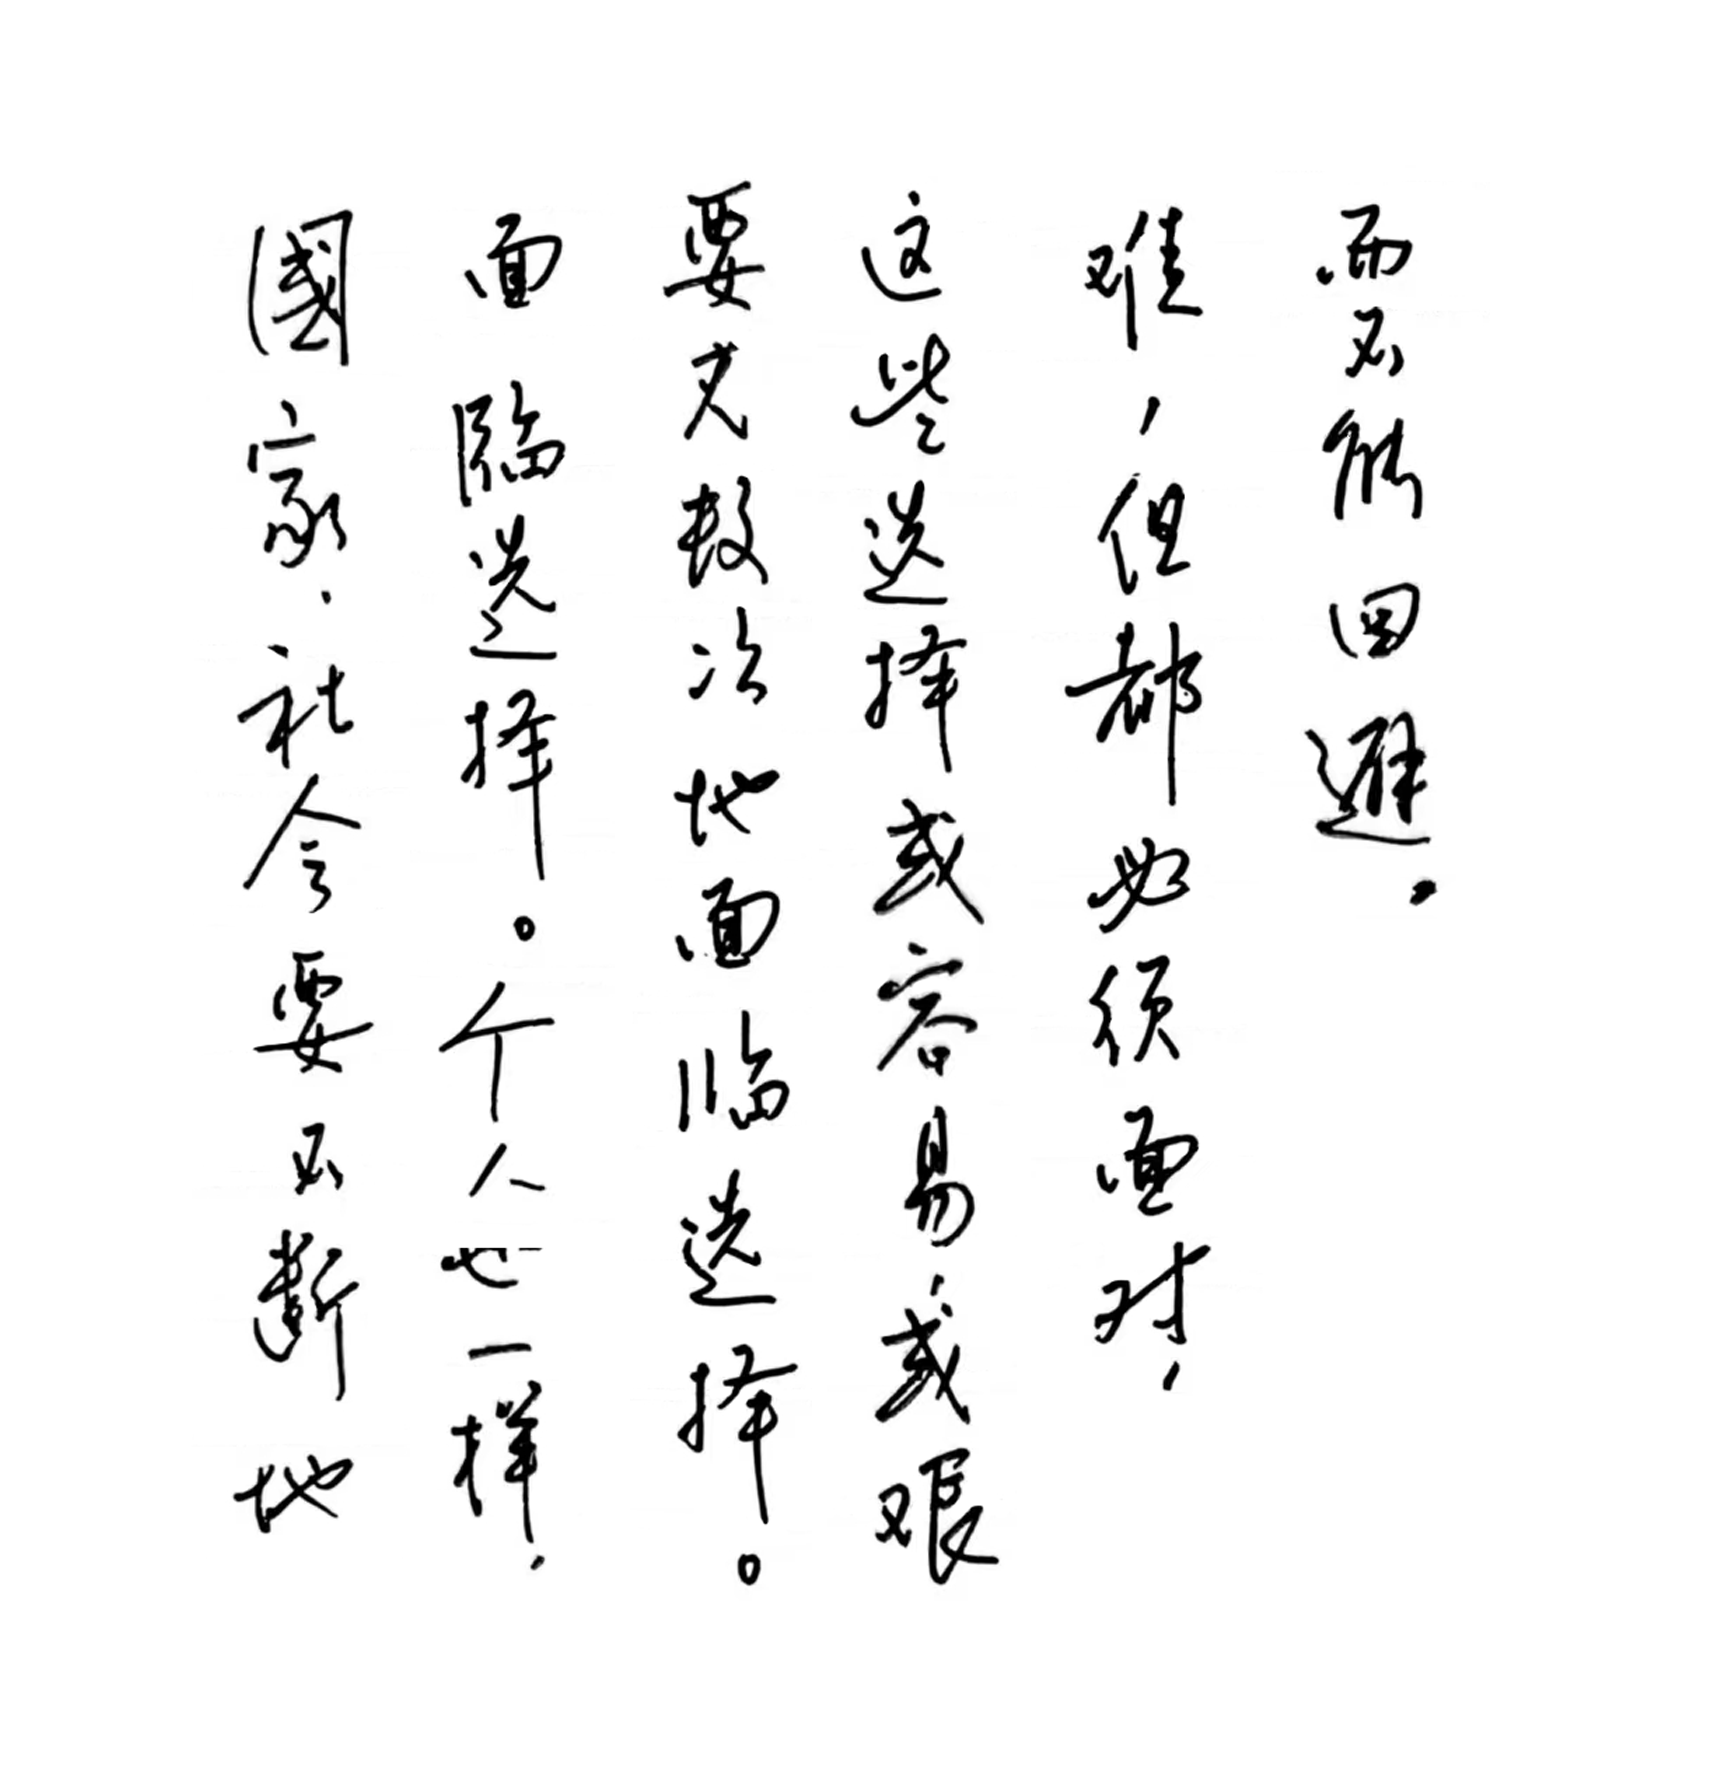 國家、社会要不断地
面臨选择。个人也一样，
要无数次地面临选择。
这些选择或容易，或艰
难，但都必须面对，
而不能回避。